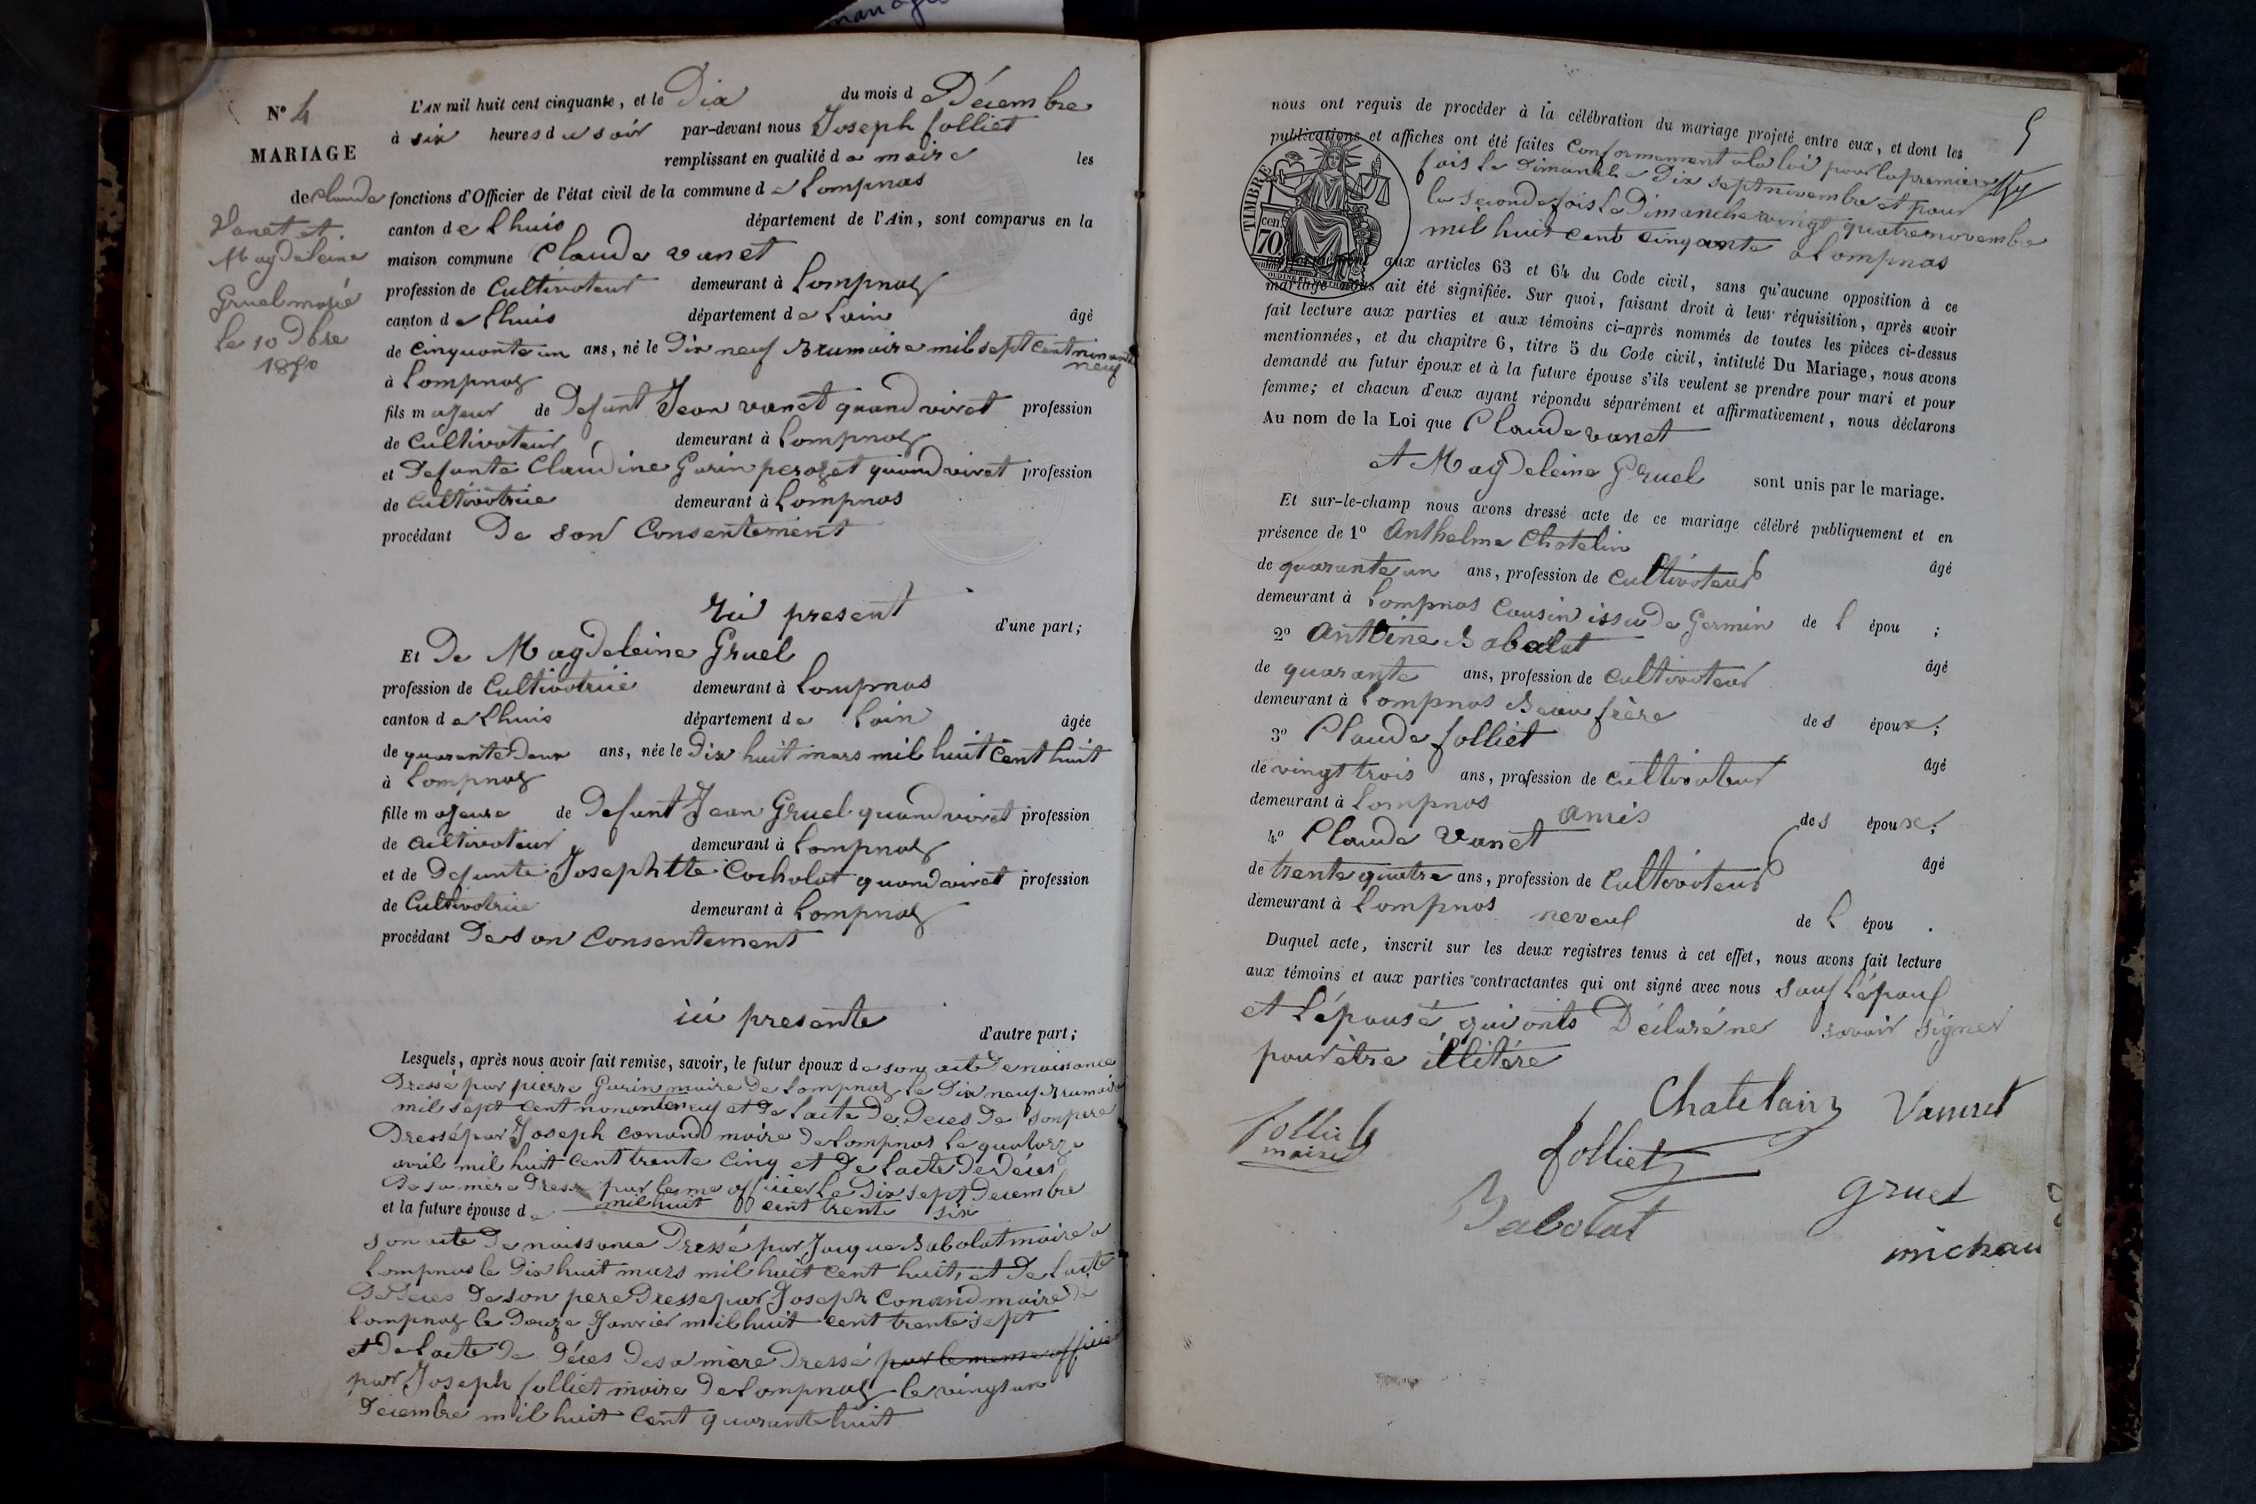 N° 4
MARIAGE
de Claude
Vanet et
Magdeleine
Gruel marié
le 10 Dbre
1850
L'AN mil huit cent cinquante, et le Dix du mois d e Décembre
à six heures d u soir par-devant nous Joseph folliet
remplissant en qualité d e maire les
fonctions d'Officier de l'état civil de la commune d e Lompnas
canton d e Lhuis département de l'Ain, sont comparus en la
maison commune Claude vanet
profession de Cultivateur demeurant à Lompnaz
canton d e Lhuis département d e Lain âgé
de cinquante un ans, né le Dix neuf Brumaire mil sept cent nonante
neuf
à Lompnaz
fils m ajeur de Defunt Jean vanet quand vivet profession
de Cultivateur demeurant à Lompnaz
et Defunte Claudine Garin perozet quand vivet profession
de Cultivatrice demeurant à Lompnas
procédant De son Consentement
ici présent d'une part;
Et De Magdeleine Gruel
profession de Cultivatrice demeurant à Lompnas
canton d e Lhuis département d e Lain âgée
de quarante Deux ans, née le Dix huit mars mil huit Cent huit
à Lompnaz
fille m ajeure de Defunt Jean Gruel quand vivet profession
de Cultivateur demeurant à Lompnaz
et de Defunte Josephtte Cocholat quand vivet profession
de Cultivatrice demeurant à Lompnaz
procédant De son Consentement
ici presente d'autre part;
Lesquels, après nous avoir fait remise, savoir, le futur époux d e son acte De naissance
Dressé par pierre Garin maire De Lompnaz le Dix neuf Brumaire
mil sept cent nonante neuf et De Lacte De Deces De son pere
Dressé par Joseph Conand maire De Lompnas le quatorze
avril mil huit Cent trente Cinq et De Lacte De Déces
De sa mère Dressé par le me officier Le Dix sept Decembre
mil huit cent trente six
et la future épouse d e
son acte De naissance Dressé par Jacque Babolat maire a
Lompnas le Dix huit mars mil huit cent huit, et De Lacte
De Deces De son pere Dresse par Joseph Conand maire De
Lompnaz le Douze Janvier mil huit cent trente sept
et De Lacte De Déces De sa mère Dressé par le meme officier
par Joseph folliet maire De Lompnaz le vingt un
Decembre mil huit Cent quarante huit
5
nous ont requis de procéder à la célébration du mariage projeté entre eux, et dont les
publications et affiches ont été faites Conformement a la loi pour la premiere
fois le Dimanche Dix sept novembre et pour
la seconde fois le Dimanche vingt quatre novembre
mil huit cent cinquante a Lompnas
TIMBRE
cen.
70
aux articles 63 et 64 du Code civil, sans qu'aucune opposition à ce
mariage nous ait été signifiée. Sur quoi, faisant droit à leur réquisition, après avoir
fait lecture aux parties et aux témoins ci-après nommés de toutes les pièces ci-dessus
mentionnées, et du chapitre 6, titre 5 du Code civil, intitulé Du Mariage, nous avons
demandé au futur époux et à la future épouse s'ils veulent se prendre pour mari et pour
femme; et chacun d'eux ayant répondu séparément et affirmativement, nous déclarons
Au nom de la Loi que Claude vanet
et Magdeleine Gruel sont unis par le mariage.
Et sur-le-champ nous avons dressé acte de ce mariage célébré publiquement et en
présence de 1° Anthelme Chatelin âgé
de quarante un ans, profession de Cultivateur
demeurant à Lompnas Cousin issu De Germin de l épou ;
2° Antoine Babolat âgé
de quarante ans, profession de Cultivateur
demeurant à Lompnas Beau frère de s époux;
3° Claude folliet âgé
de vingt trois ans, profession de cultivateur
demeurant à Lompnas amis des époux;
4° Claude Vanet âgé
de trente quatre ans, profession de Cultivateur
demeurant à Lompnas neveuf de l épou .
Duquel acte, inscrit sur les deux registres tenus à cet effet, nous avons fait lecture
aux témoins et aux parties contractantes qui ont signé avec nous sauf Lépouf
et Lépouse qui onts Déclaré ne savoir signer
pour être illitére
Chatelain Vanret
Folliet
maire
folliet
Babolat gruel
michau